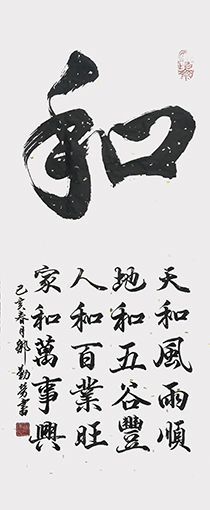 和
天和風雨順
地和五谷豐
人和百業旺
家和萬事興
己亥春月鄒勤勞書